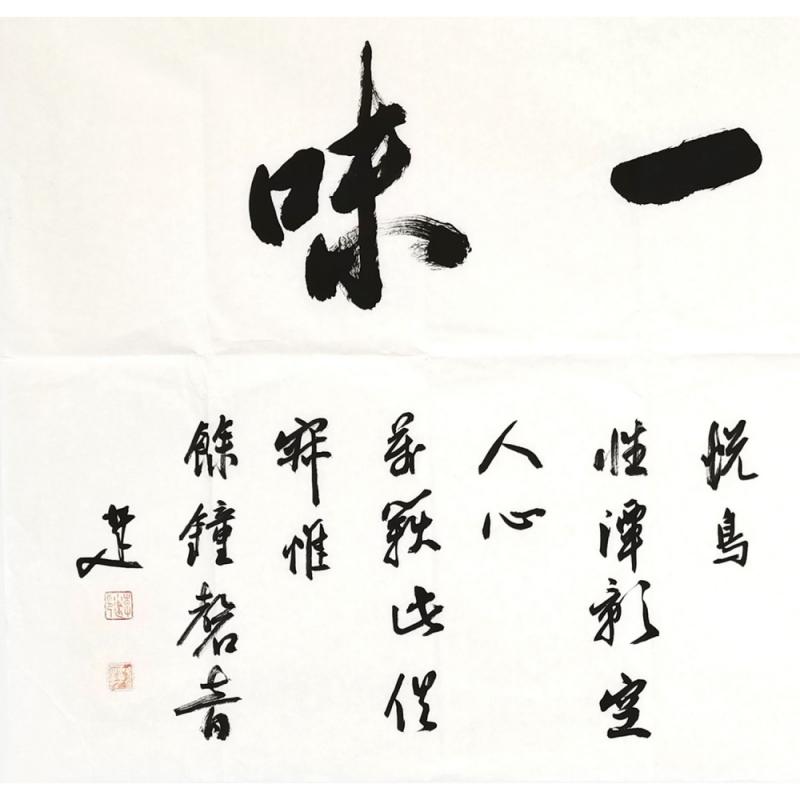 一味
悦鳥
性潭影空
人心
萬籟此俱
寂惟
餘鐘磬音